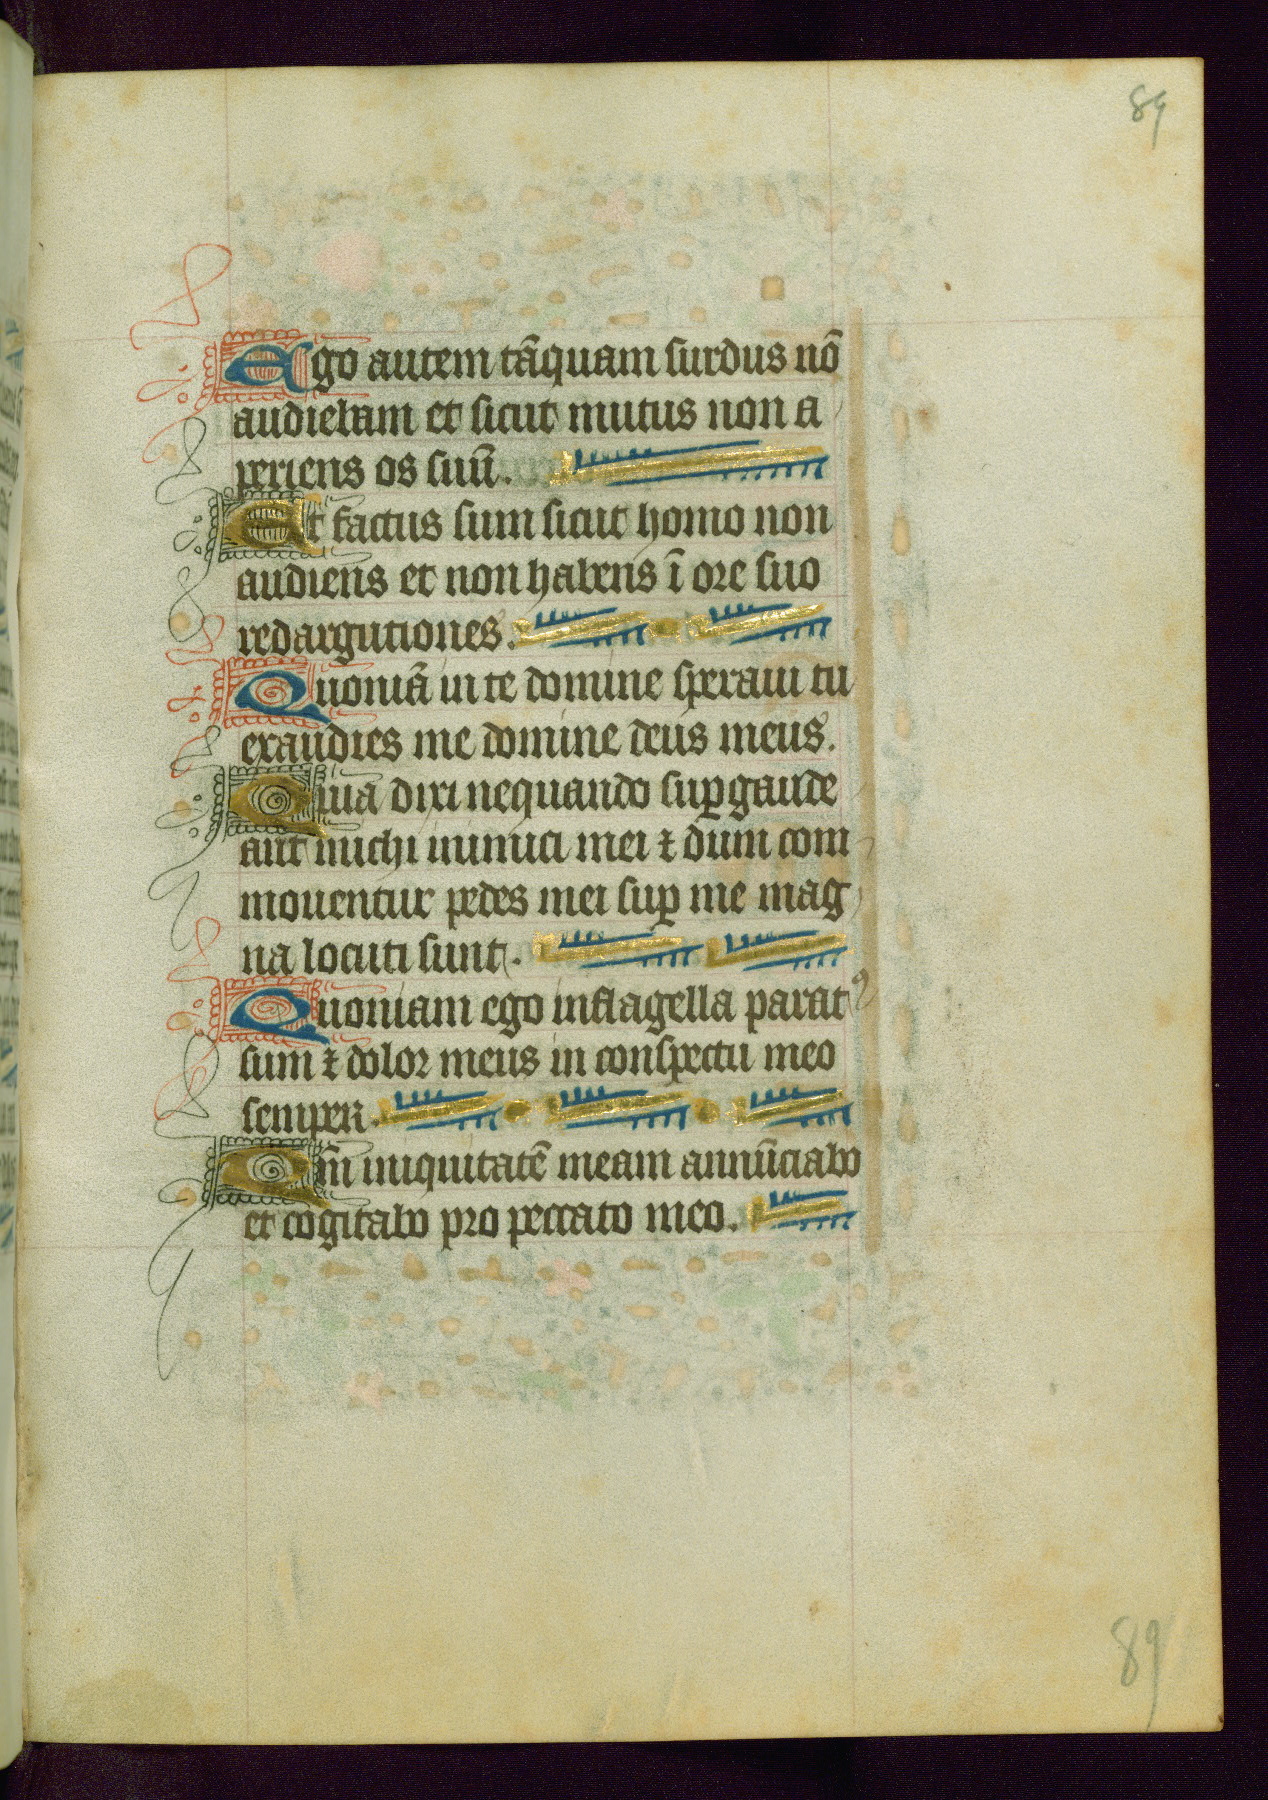 89
Ego autem tāquam surdus nō
audiebam et sicut mutus non a
periens os suū.
Et factus sum sicut homo non
audiens et non habens ī ore suo
redargutiones.
Quoniā in te domine speraui tu
exaudies me domine deus meus.
Quia dixi nequando suꝑgaude
ant michi inimici mei ⁊ dum com
mouentur pedes mei suꝑ me mag
na locuti sunt.
Quoniam ego in flagella paratꝰ
sum ⁊ dolor meus in conspectu meo
semper.
Qm̄ iniquitatē meam annūciabo
et cogitabo pro peccato meo.
89